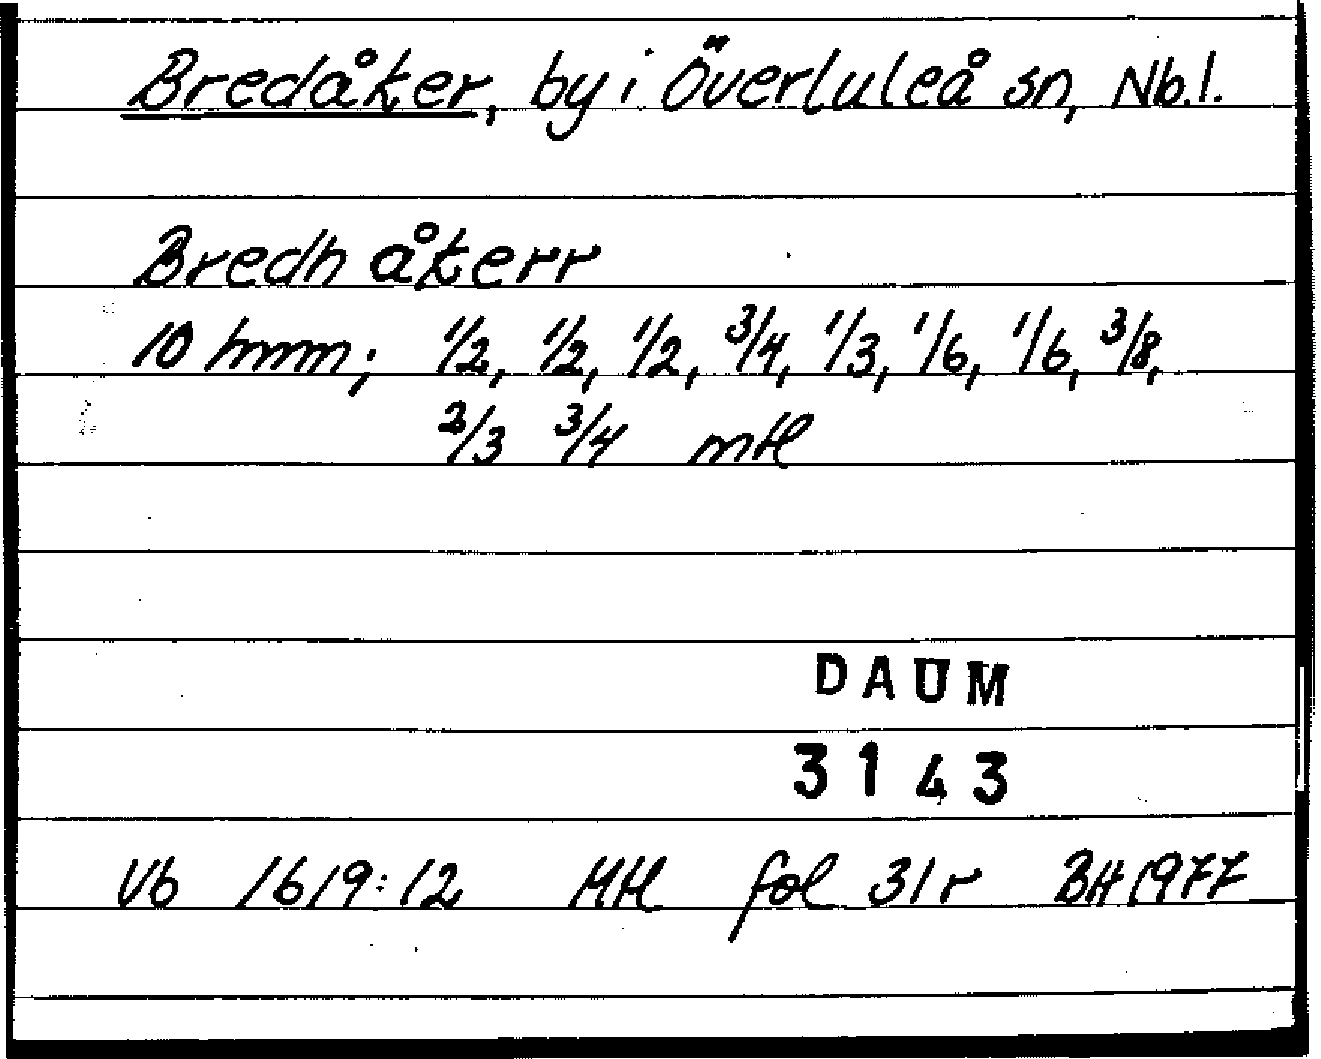 Bredåker, by i Överluleå sn, Nb.l.
Bredh åkerr
10 hmm; 1/2, 1/2, 1/2, 3/4, 1/3, 1/6, 1/6, 3/8,
2/3 3/4 mtl
DAUM
3143
Vb 1619:12 Mtl fol 31r BH 1977